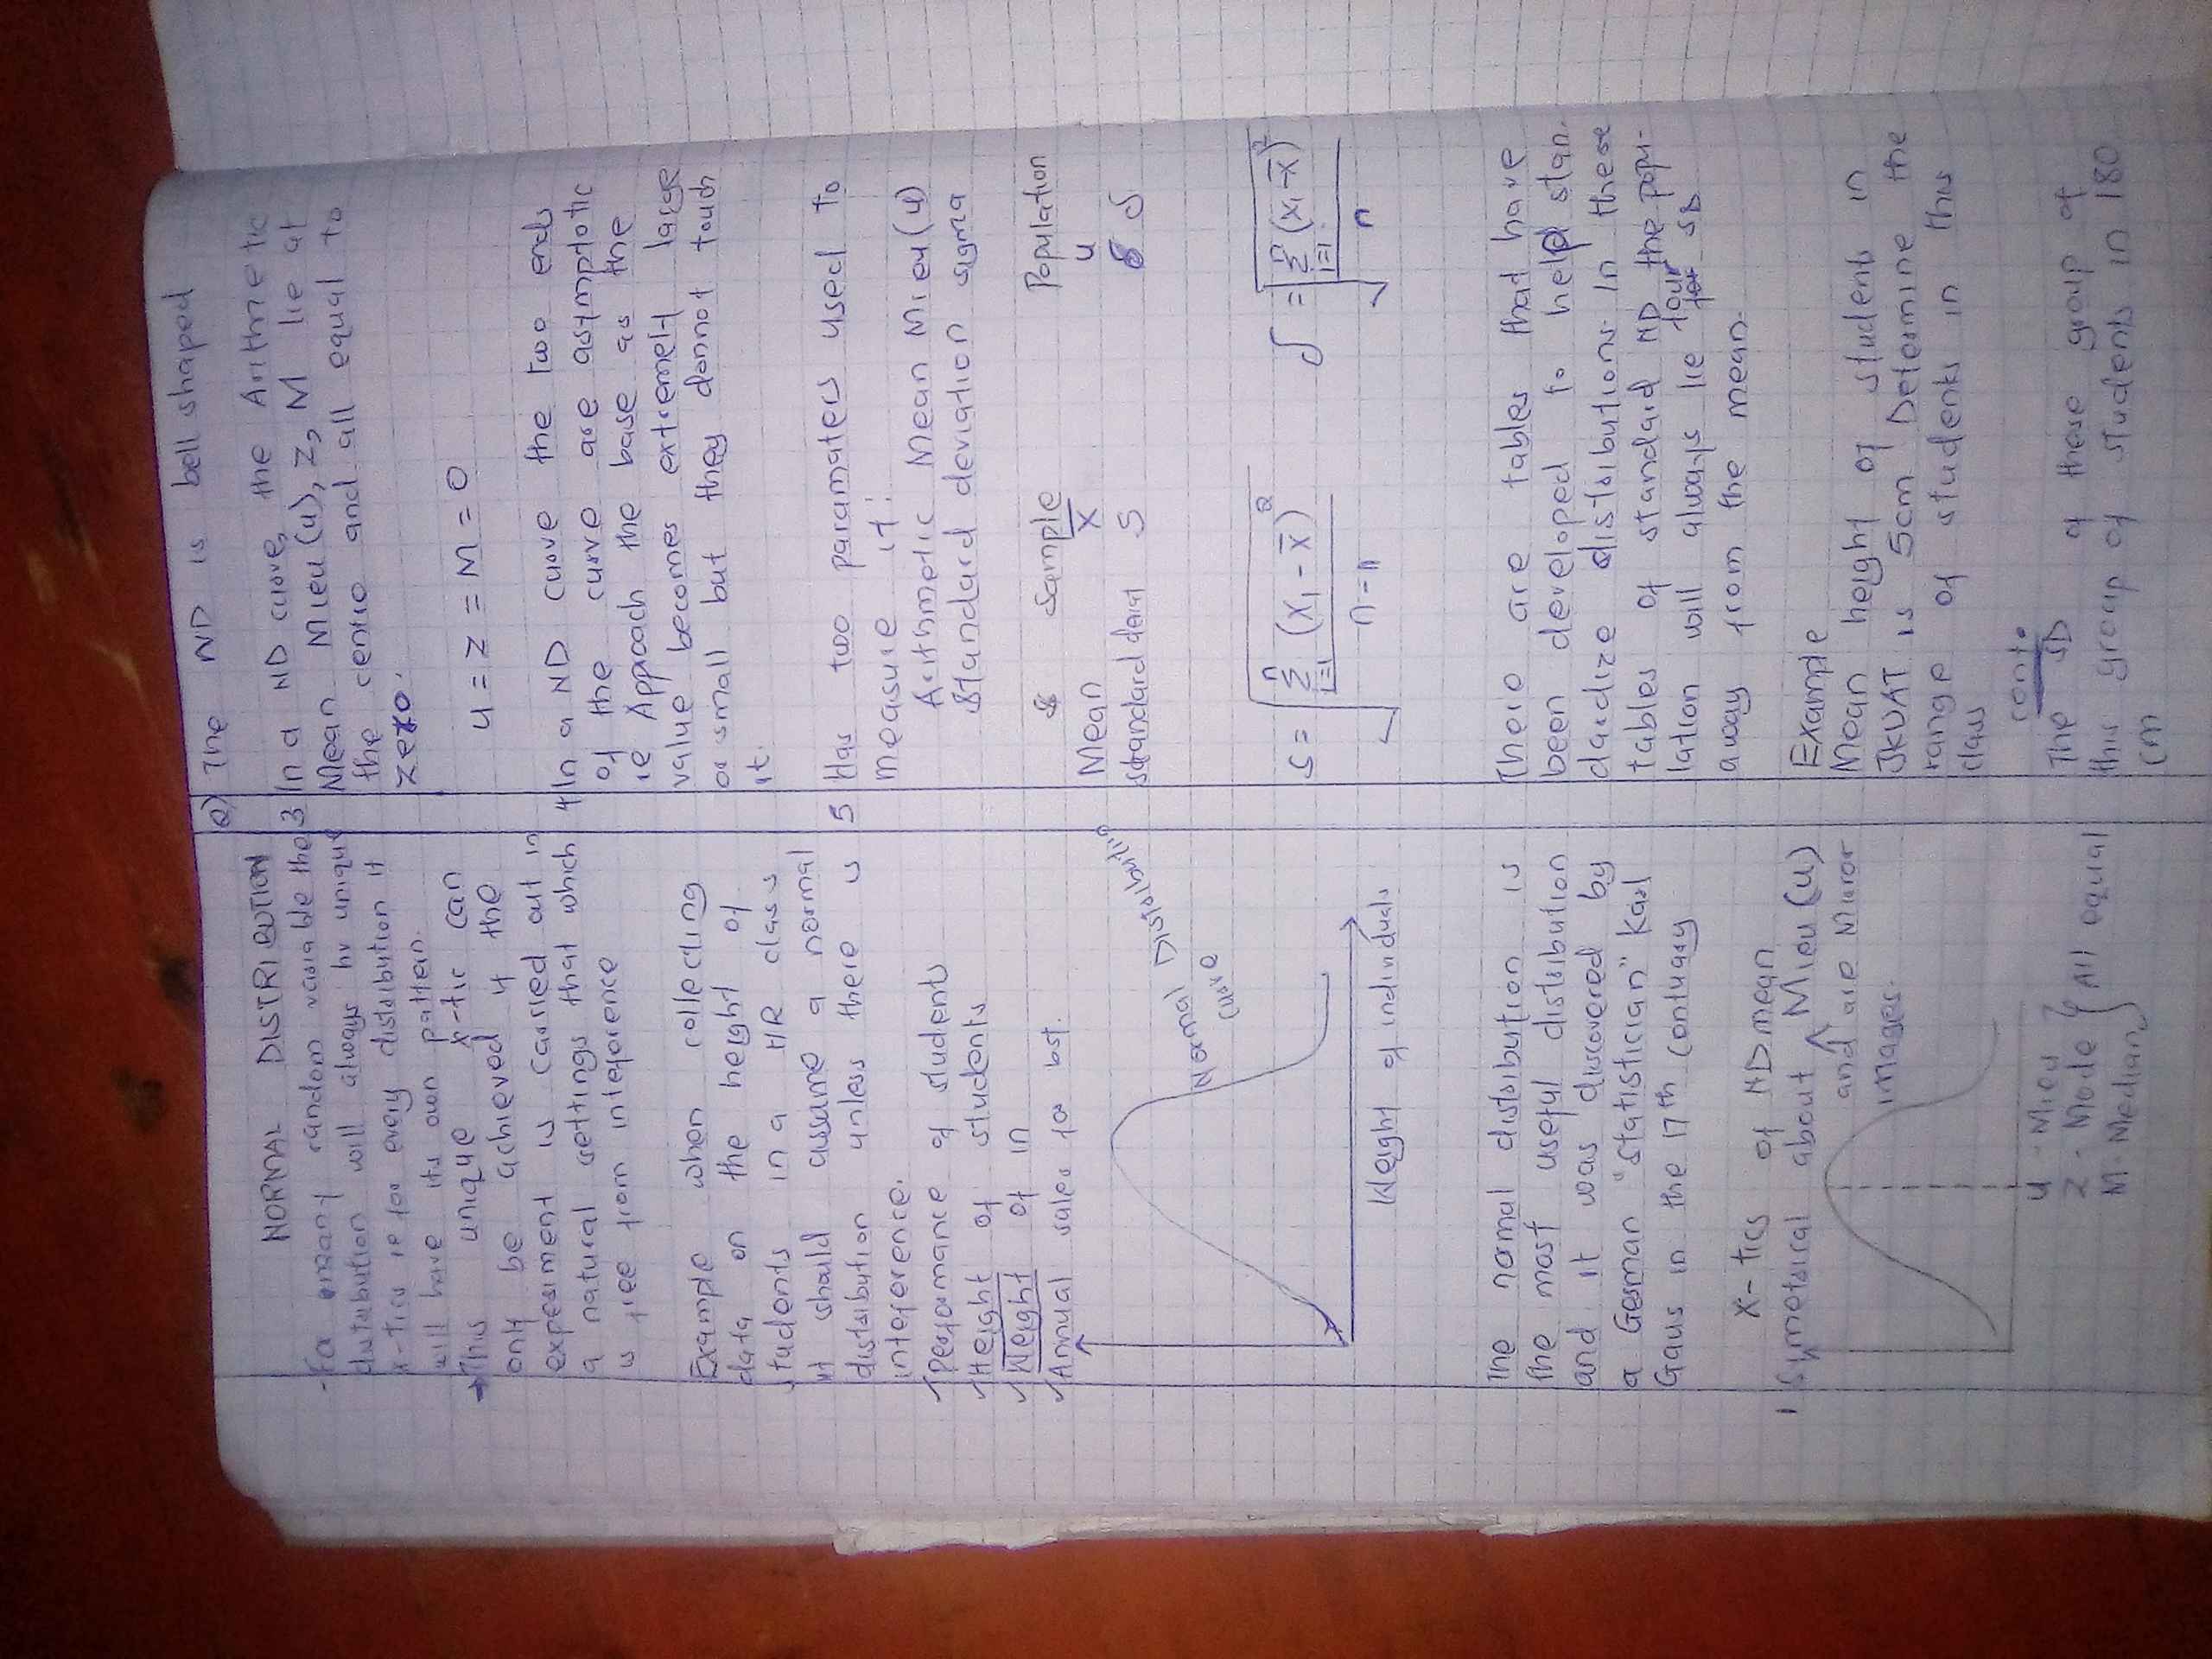 NORMAL DISTRIBUTION
- Fa many random variable the
distribution will always hv unique
x-tics ie for every distribution it
will have its own pattern.
→ This unique x-tic can
only be achieved if the
experiment is carried out in
a natural settings that which
is free from interference
Example when collecting
data on the height of
students in a HR class
it should assume a normal
distribution unless there is
interference.
✓ Performance of students
✓ Height of students
✓ Weight of in
✓ Annual sales for bst.
Normal Distribution
curve
Height of individuals
The normal distribution is
the most useful distribution
and it was discovered by
a German "statistician" Karl
Gaus in the 17th contuary
x-tics of ND mean
1 Symmetrical about Mieu (u)
and are Miror
images.
u - Mieu
Z - Mode } All equal
M - Median
2) The ND is bell shaped
3 In a ND curve, the Arithmetic
Mean Mieu (u), Z, M lie at
the centre and all equal to
zero.
u = Z = M = 0
4 In a ND curve the two ends
of the curve are asymptotic
ie Approach the base as the
value becomes extremely large
or small but they donnot touch
it.
5 Has two paramaters used to
measure it!
Arithmetic Mean Mieu (u)
Standard deviation sigma
Sample Population
Mean x̄ u
standard devat S δ
S = √ n Σ i=1 (x₁ - x̄)² n-1
δ = √ n Σ i=1 (x₁-x̄)² n
There are tables that have
been developed to help stan-
dardize distributions. In these
tables of standard ND the popu-
lation will always lie four SD
away from the mean.
Example
Mean height of students in
JKUAT is 5cm Determine the
range of students in this
class
cont.
The SD of these group of
this group of students in 180
cm